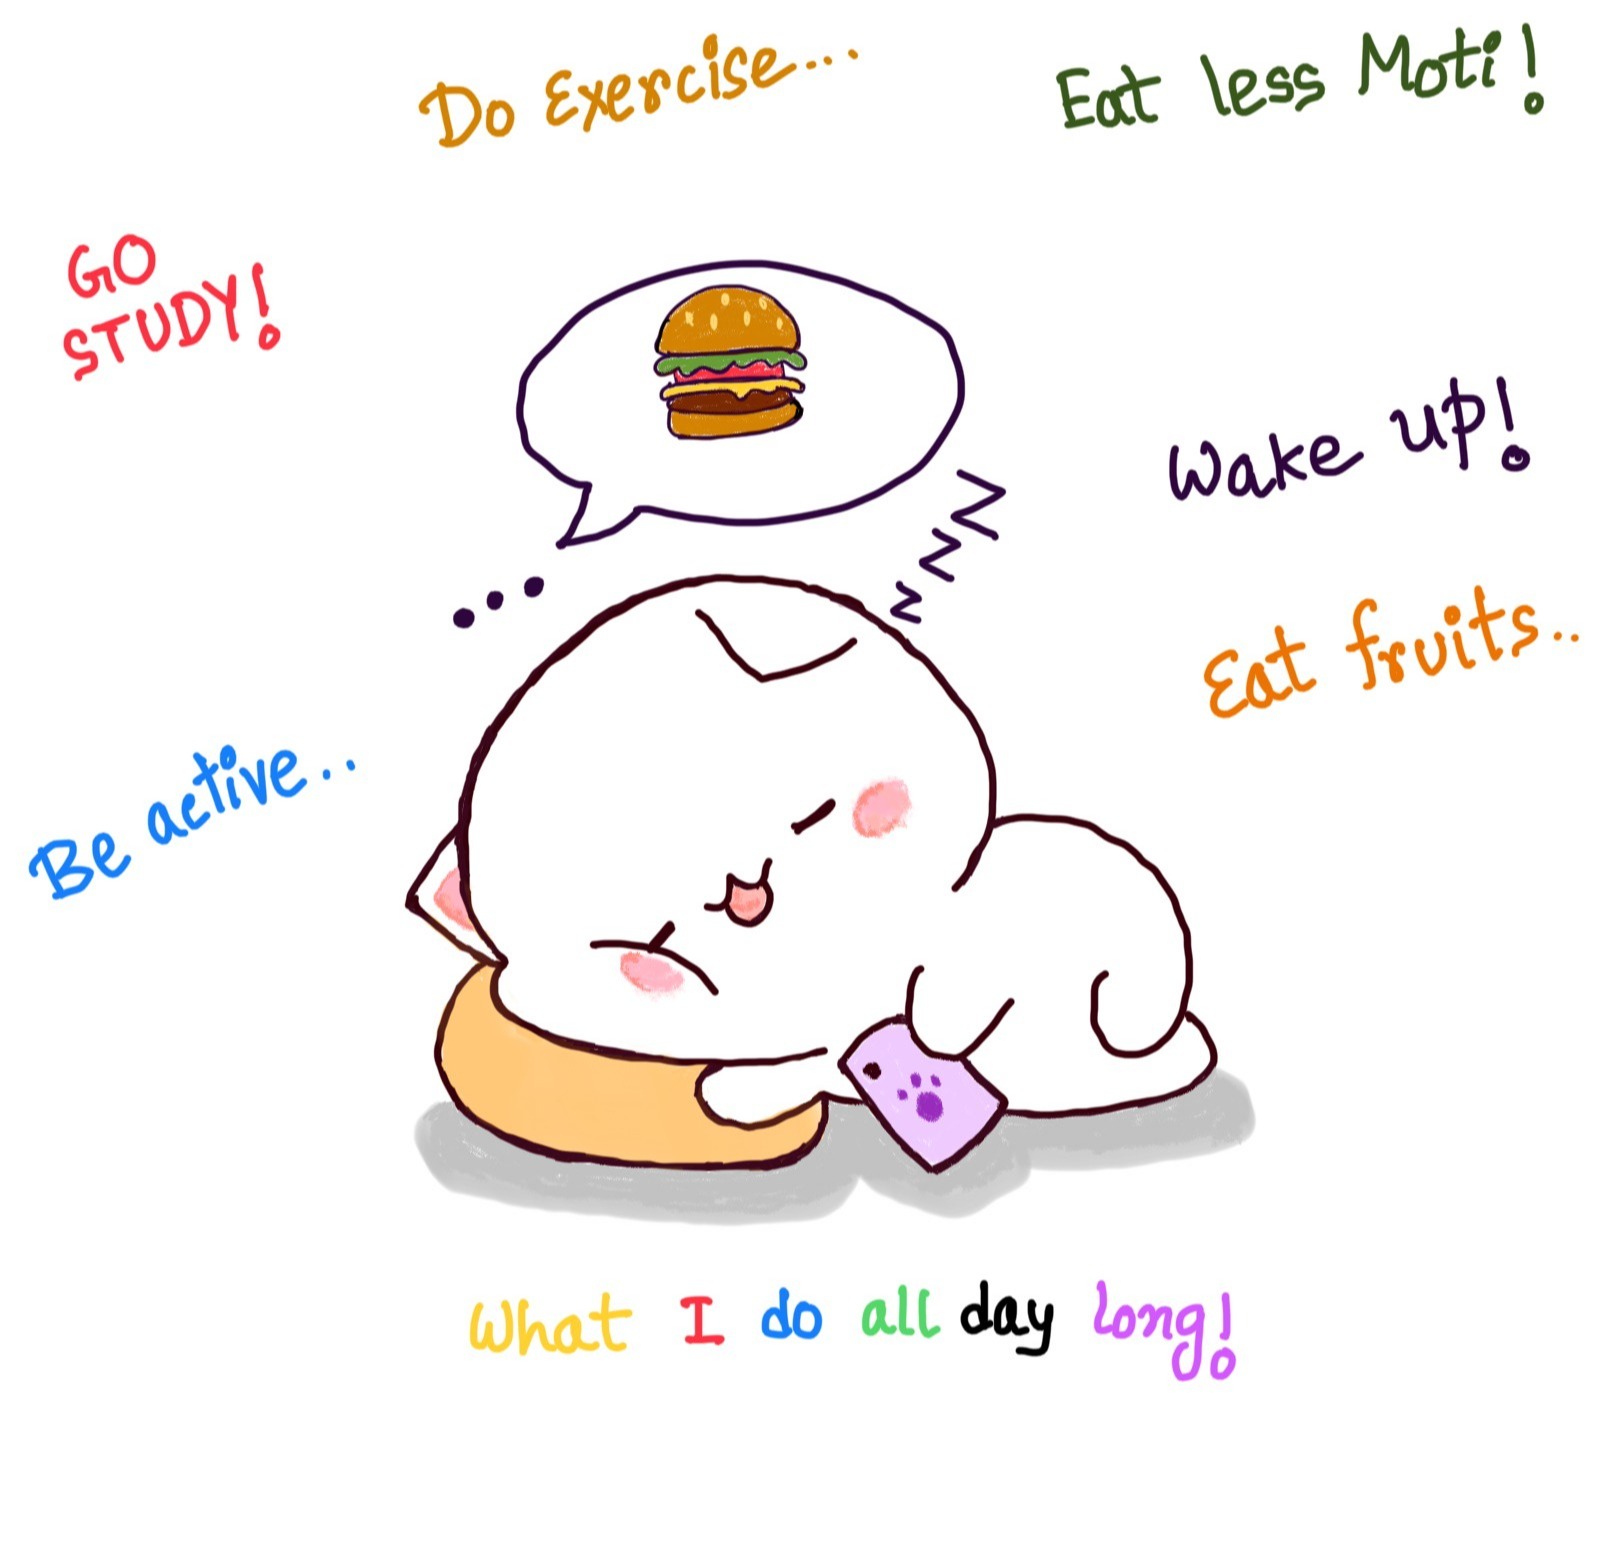 Do Exercise...
Eat less Moti!
GO
STUDY!
z
z
z
Wake up!
Eat fruits..
Be active..
What I do all day long!